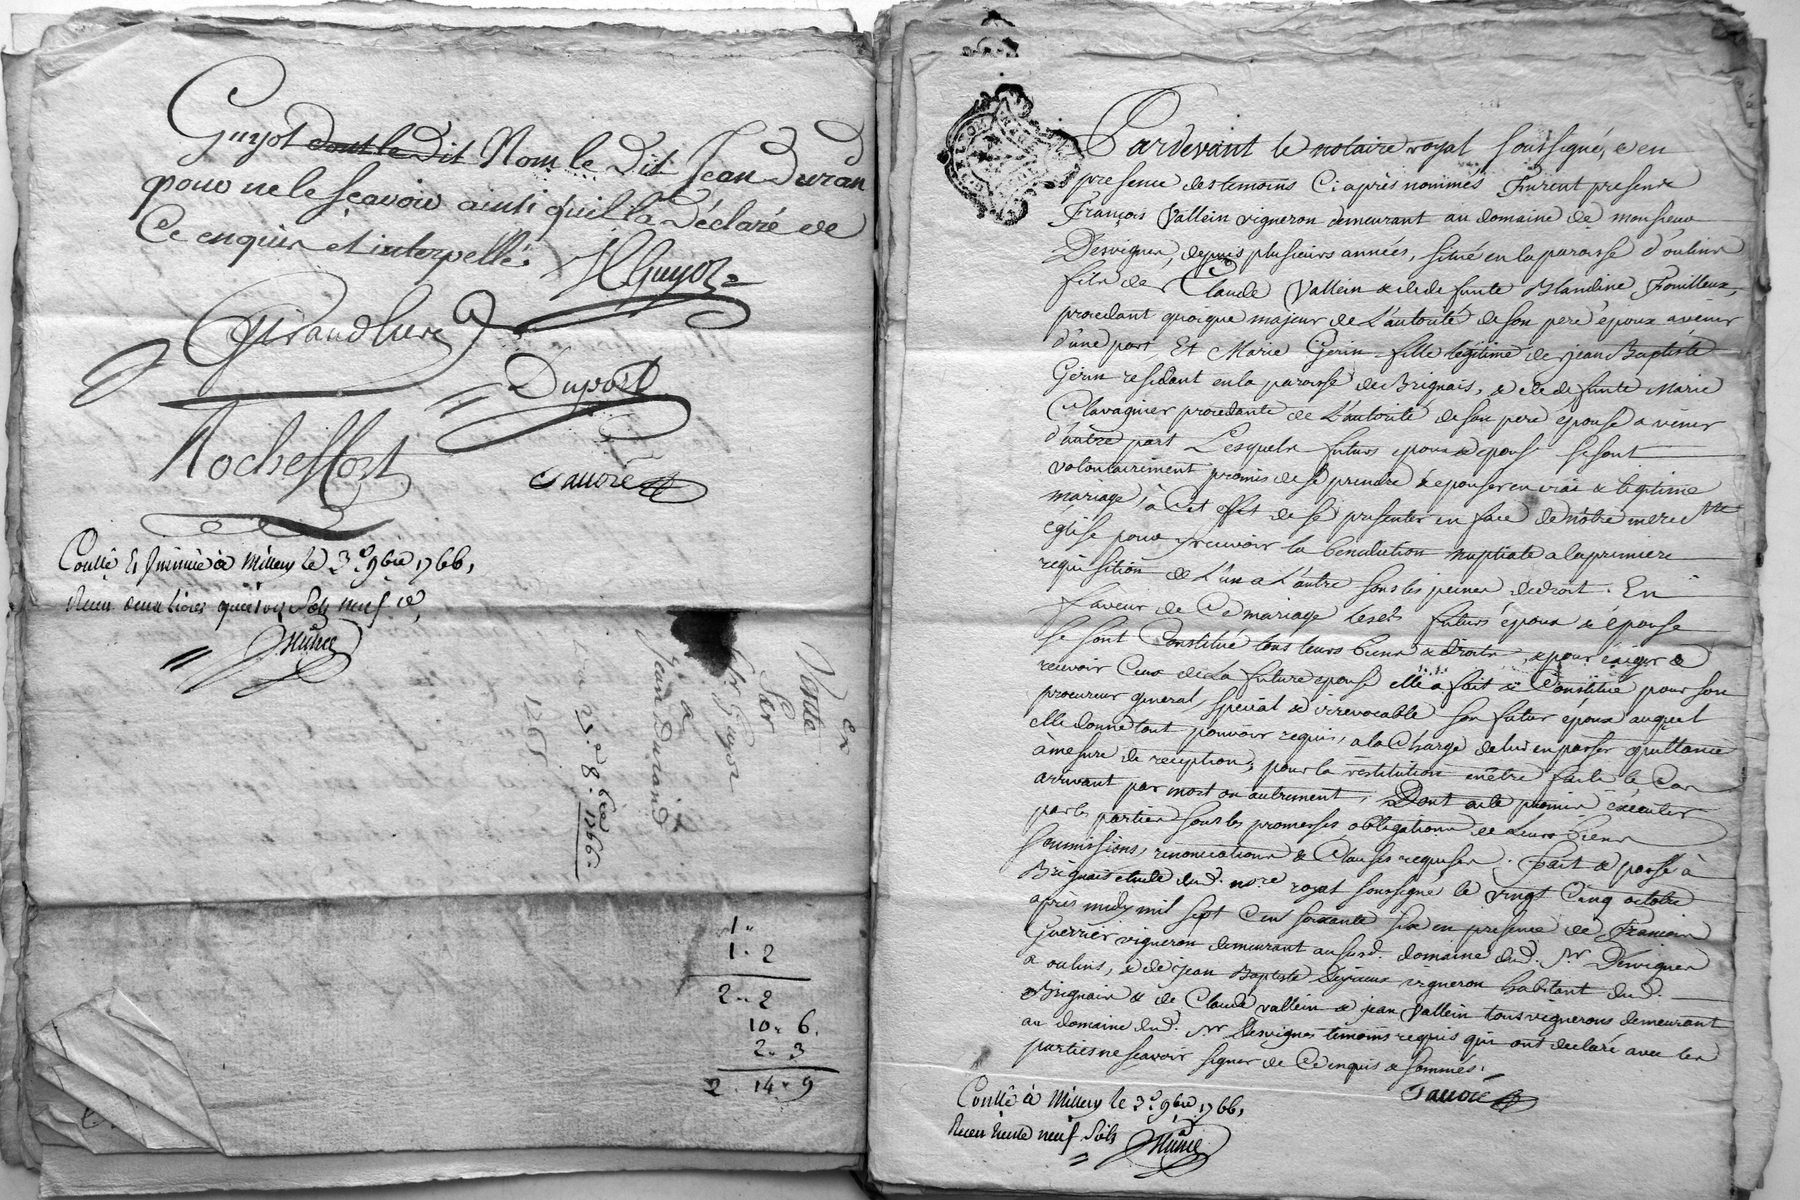 Guyot dont le Dit Non le Dit Jean Duran
pour ne le sçavoir ainsi quil la Déclaré de
Ce enquis et interpellé.
HGuyot
Giraudhuré
Duport
Rocheffort
Tavoré
Conllé & Insinüé à Millery le 3e. 9bre 1766,
Reçu deux livres quatorze sols neuf d,
Vente
Sr Guyot
à
Jean Durand
23e 8bre 1766.
1 "
1 . 2
2 .. 2
10 . 6.
2 . 3
2 . 14 . 9
Pardevant le notaire royal soussigné, & en
presence des temoins Ci après nommés Furent presens
François Vallein vigneron demeurant au domaine de monsieur
Desvignes, depuis plusieurs années, situé en la paroisse d'oulins
fils de Claude Vallein & de defunte Blandine Fouilleux,
procedant quoique majeur de L'autorité de son pere époux avenir
d'une part, Et Marie Gerin fille légitime de jean Baptiste
Gerin residant en la paroisse de Brignais, & de defunte Marie
Clavagnier procedante de L'autorité de son pere épouse a venir
d'autre part Lesquels futurs epoux & epouse se sont
volontairement promis de se prendre & épouser en vrai & légitime
mariage, à Cet effet de se presenter en face de nôtre mere Ste
église pour y recevoir la benediction nuptiale a la premiere
requisition de L'un a L'autre sous les peines de droit. En
faveur de Ce mariage lesds futurs époux & épouse
se sont Constitué tous leurs biens & droits, & pour éxiger &
recevoir Ceux de La future epouse elle a fait & Constitué pour son
procureur general, special & irrevocable son futur époux auquel
elle donne tout pouvoir requis, a la Charge de lui en passer quittance
à mesure de reception, pour la restitution en être faite le Cas
arrivant par mort ou autrement, Dont acte promis éxécuter
par les parties sous les promesses obligations de leurs biens
soumissions, renonciations & Clauses requises. Fait & passé à
Brignais etude dud. nore royal soussigné le vingt Cinq octobre
après midy mil sept Cent soixante six en presence de François
Guerrier vigneron demeurant au susd. domaine dud. Sr Desvignes
a oulins, & de jean Baptiste vigneron habitant dud.
Brignais & de Claude vallein & jean Vallein tous vignerons demeurant
au domaine dud. Sr Desvignes temoins requis qui ont declaré avec les
parties ne scavoir signer de Ce enquis & sommés.
Tavoré
Conllé à Millery le 3e. 9bre 1766,
Reçu trente neuf sols